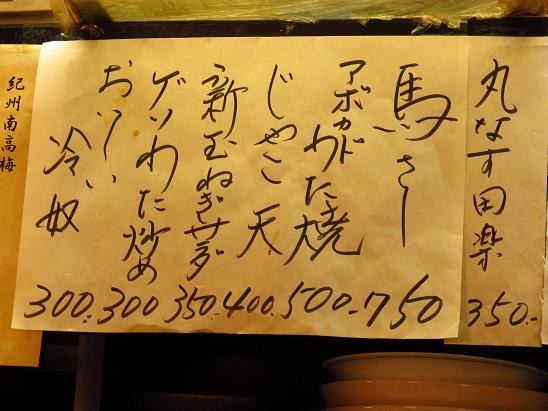 丸なす田楽
350.-
馬さし
750
アボカドわた焼
500-
じゃこ天
400.
新玉ねぎサラダ
350.
ゲソわた炒め
300
おいしい
冷奴
300.
紀州南高梅